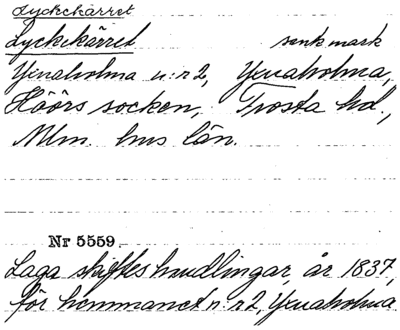 Lyckekärret
Lyckekärret sank mark
Yxnaholma n:r 2, Yxnaholma,
Höörs socken, Frosta hd.,
Mlm. hus län.
Nr 5559.
Laga skifteshandlingar, år 1837,
för hemmanet n:r 2, Yxnaholma